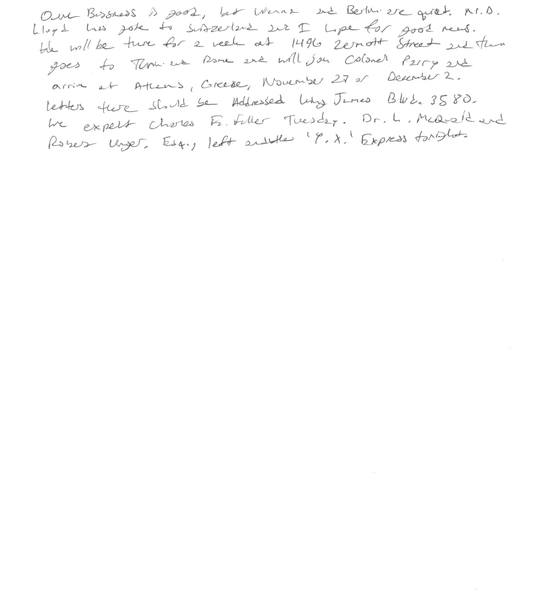 Our Business is good, but Vienna and Berlin are quiet. Mr. D.
Lloyd has gone to Switzerland and I hope for good news.
He will be there for a week at 1496 Zermott Street and then
goes to Turin and Rome and will join Colonel Parry and
arrive at Athens, Greece, November 27 or December 2.
Letters there should be Addressed King James Blvd. 3580.
We expect Charles E. Fuller Tuesday. Dr. L. McQuaid and
Robert Unger, Esq., left on the 'Y.X.' Express tonight.